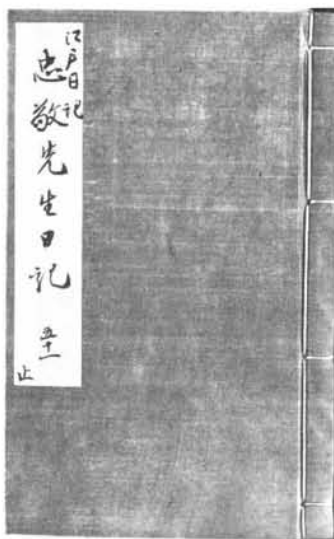 江戸日記
忠敬先生日記 五十一
止